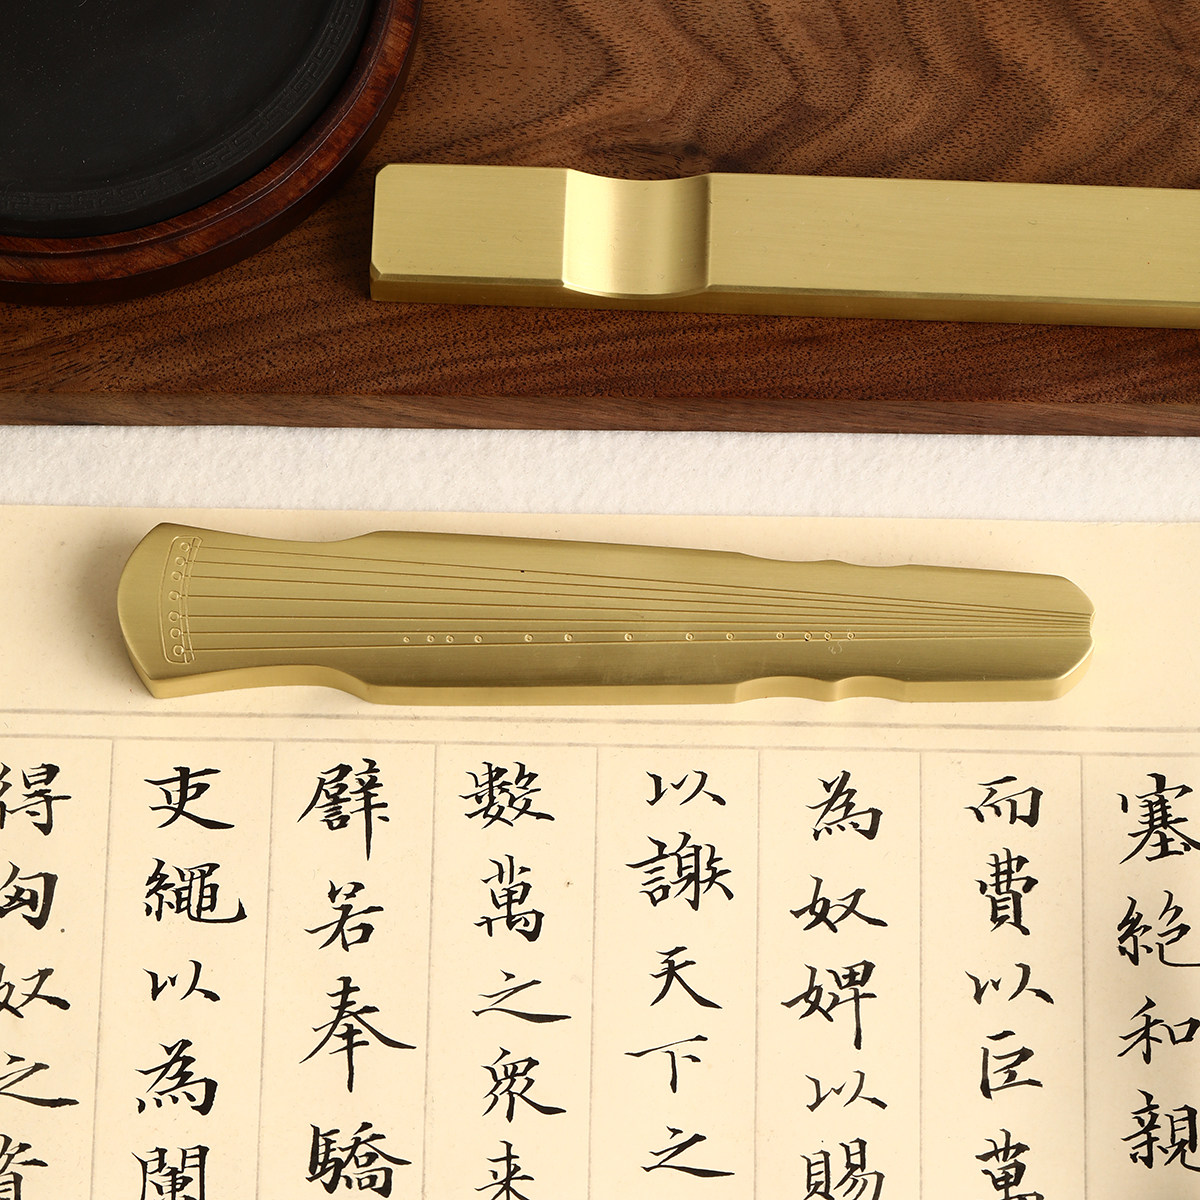 塞絕和親
而費以巨萬
為奴婢以賜
以謝天下之
數萬之衆来
譬若奉驕
吏繩以為闌
得匈奴之資